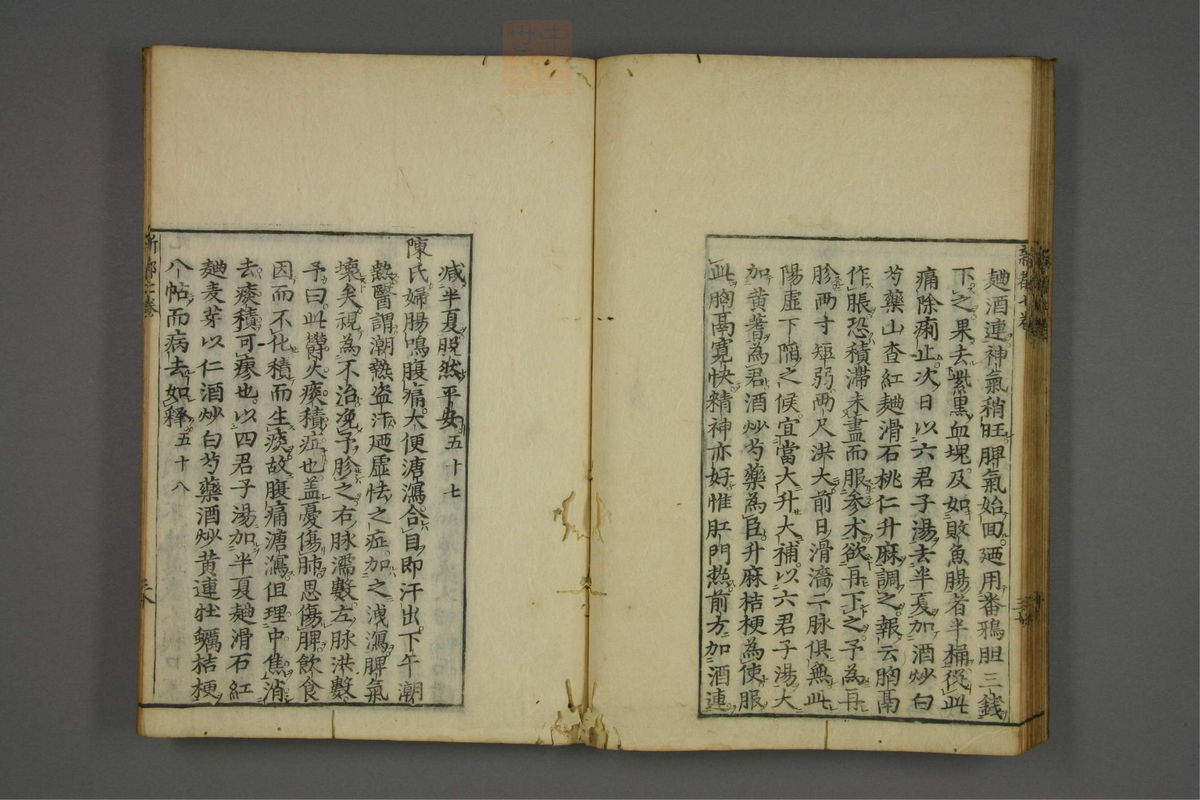 麯酒連神氣稍旺脾氣始回廼用蕃鴉胆三錢
下之果去紫黑血塊及如敗魚腸者半桶從此
痛除痢止次日以六君子湯去半夏加酒炒白
芍藥山查紅麯滑石桃仁升麻調之報云胸鬲
作脹恐積滯未盡而服參术欲再下之予為再
胗兩寸短弱兩尺洪大前日滑濇二脉俱無此
陽虛下陷之候宜當大升大補以六君子湯大
加黃蓍為君酒炒芍藥為臣升麻桔梗為使服
此胸鬲寬快精神亦好惟肛門熱前方加酒連
減半夏脫然平安五十七
陳氏婦腸鳴腹痛大便溏瀉合目即汗出下午潮
熱醫謂潮熱盗汗廼虛怯之症加之洩瀉脾氣
壞矣視為不治凂予胗之右脉濡數左脉洪數
予曰此欝火痰積症也盖憂傷肺思傷脾飲食
因而不化積而生痰故腹痛溏瀉但理中焦消
去痰積可瘳也以四君子湯加半夏麯滑石紅
麯麦芽以仁酒炒白芍藥酒炒黃連牡蠣桔梗
八帖而病去如釋五十八